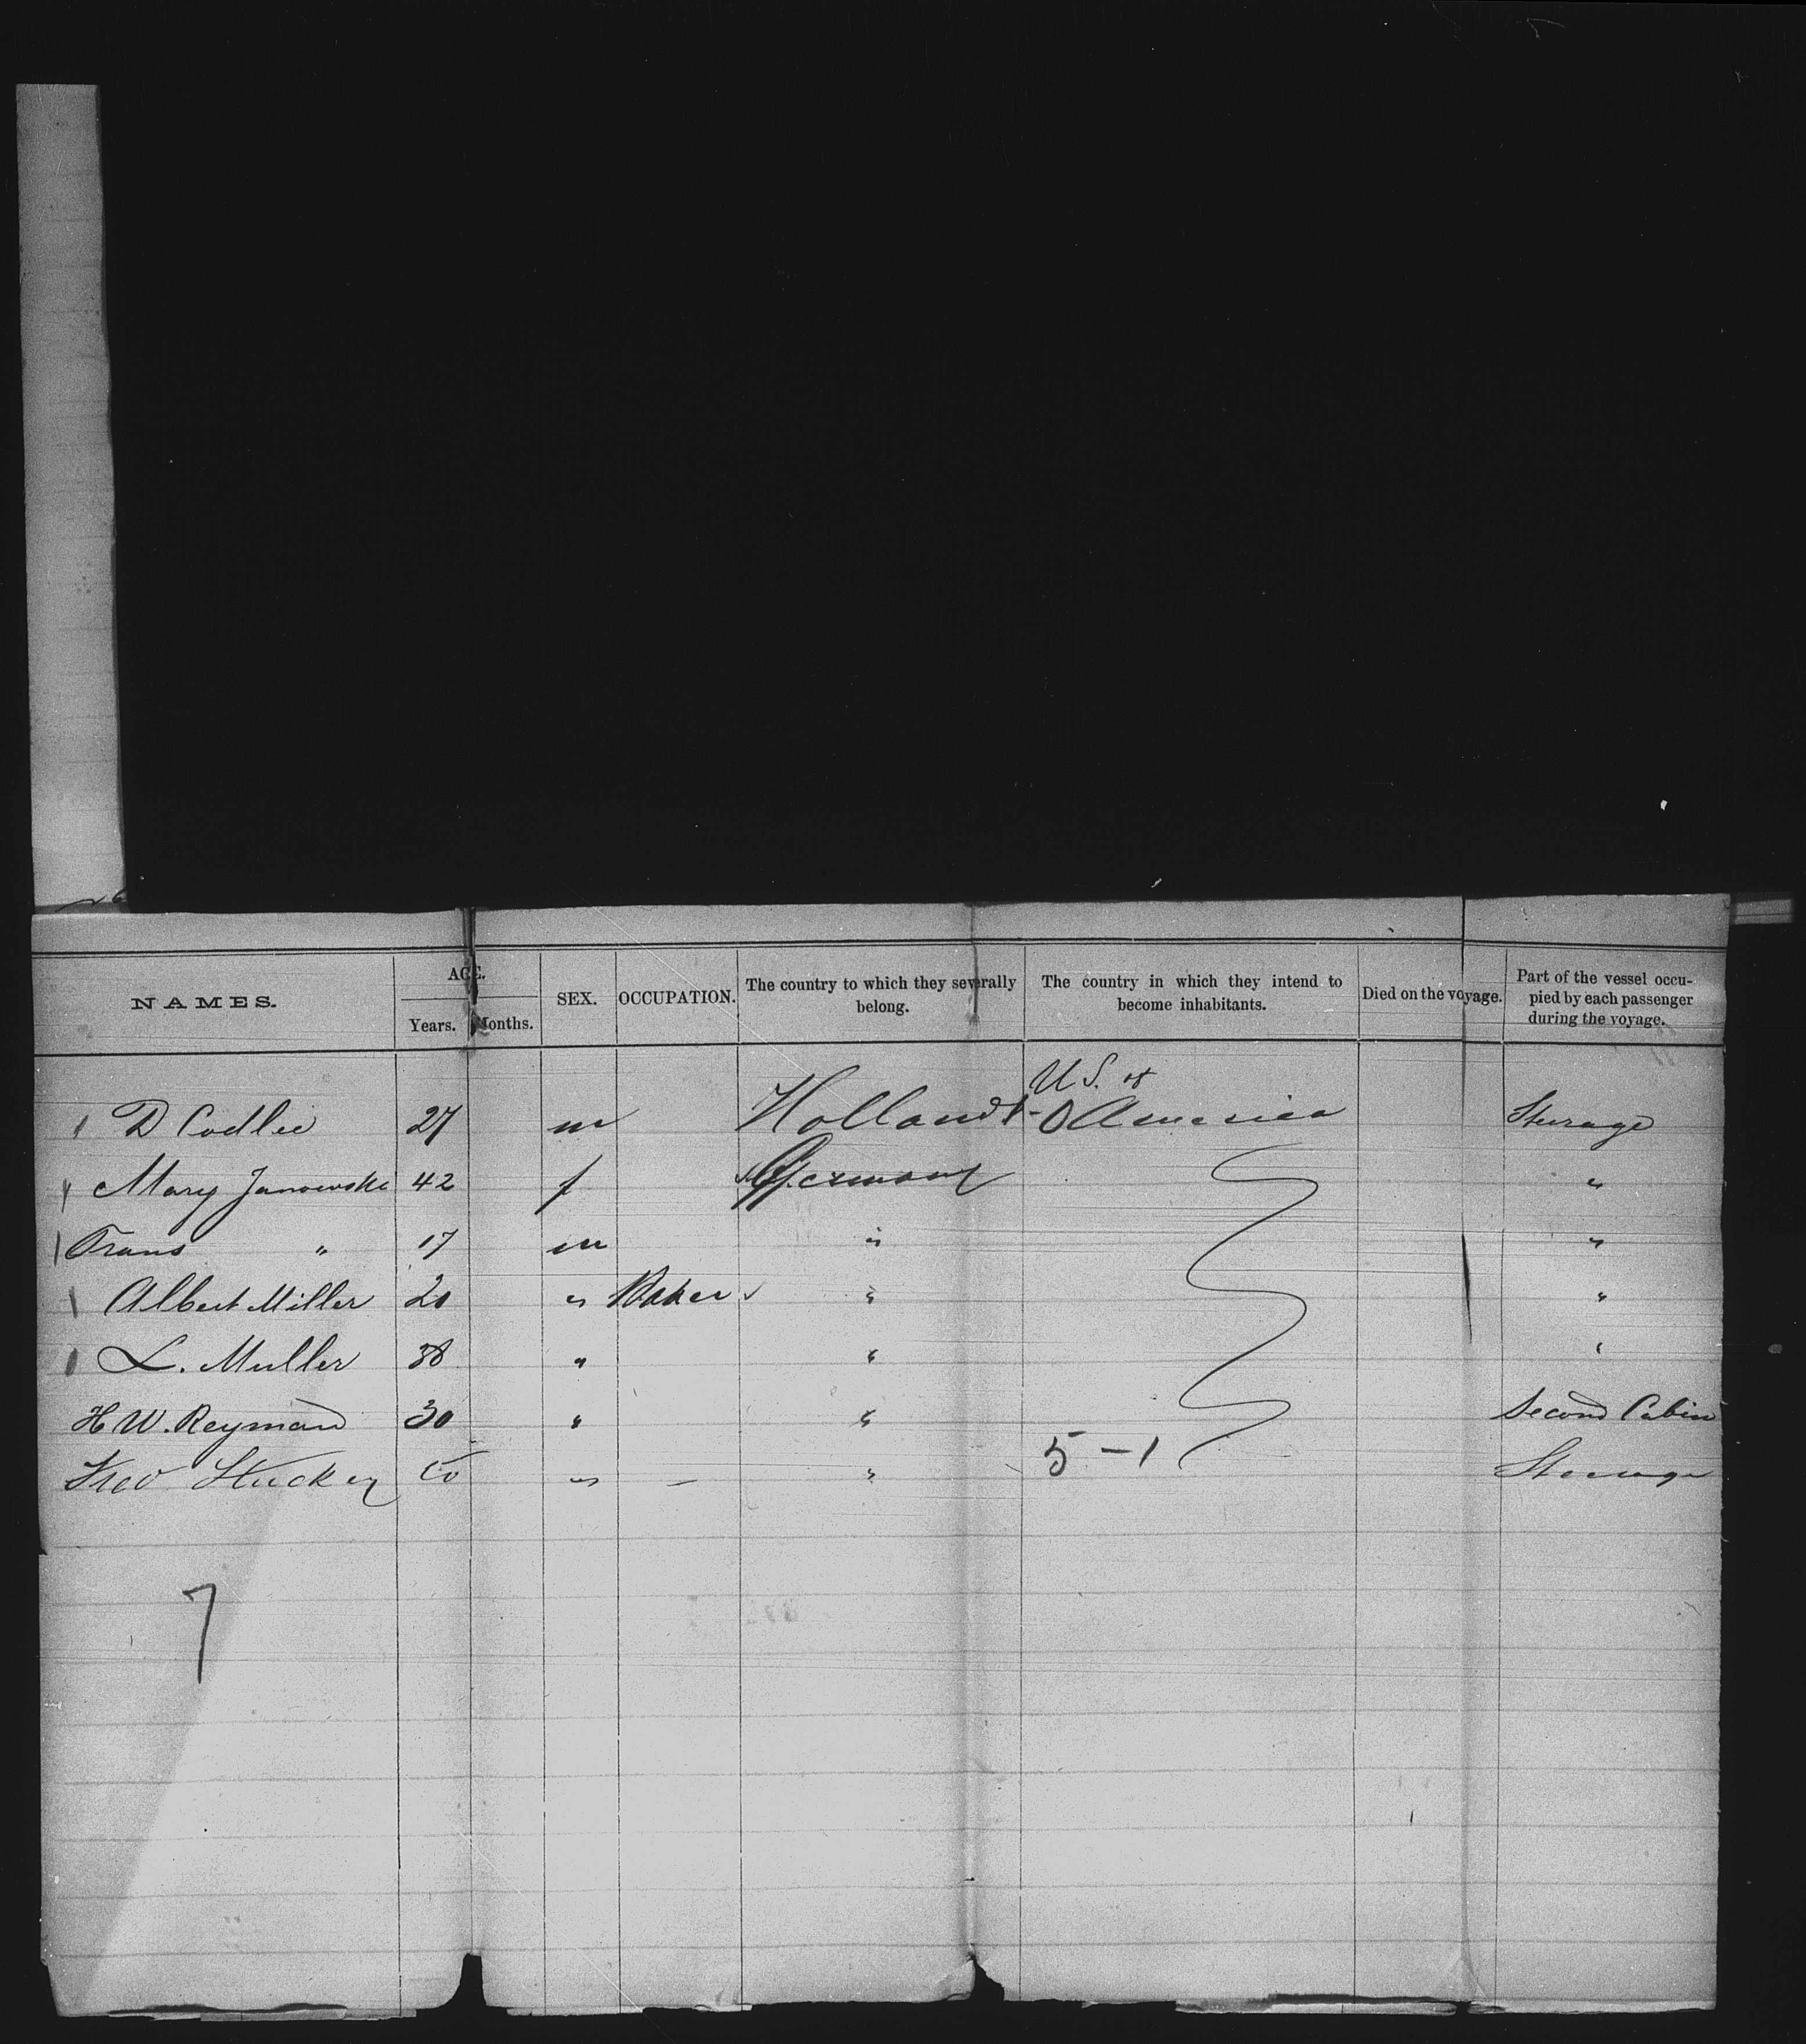 NAMES. AGE. Years. Months. SEX. OCCUPATION. The country to which they severally belong. The country in which they intend to become inhabitants. Died on the voyage. Part of the vessel occupied by each passenger during the voyage.
U.S. of
D 27 m Holland America Steerage
Mary Janowski 42 f Germany "
Frans " 17 m " "
Albert Miller 20 " Baker " "
L. Muller 38 " " "
H W. Reyman 30 " " Second Cabin
5 - 1
Fred Stuckey " - " Steerage
7